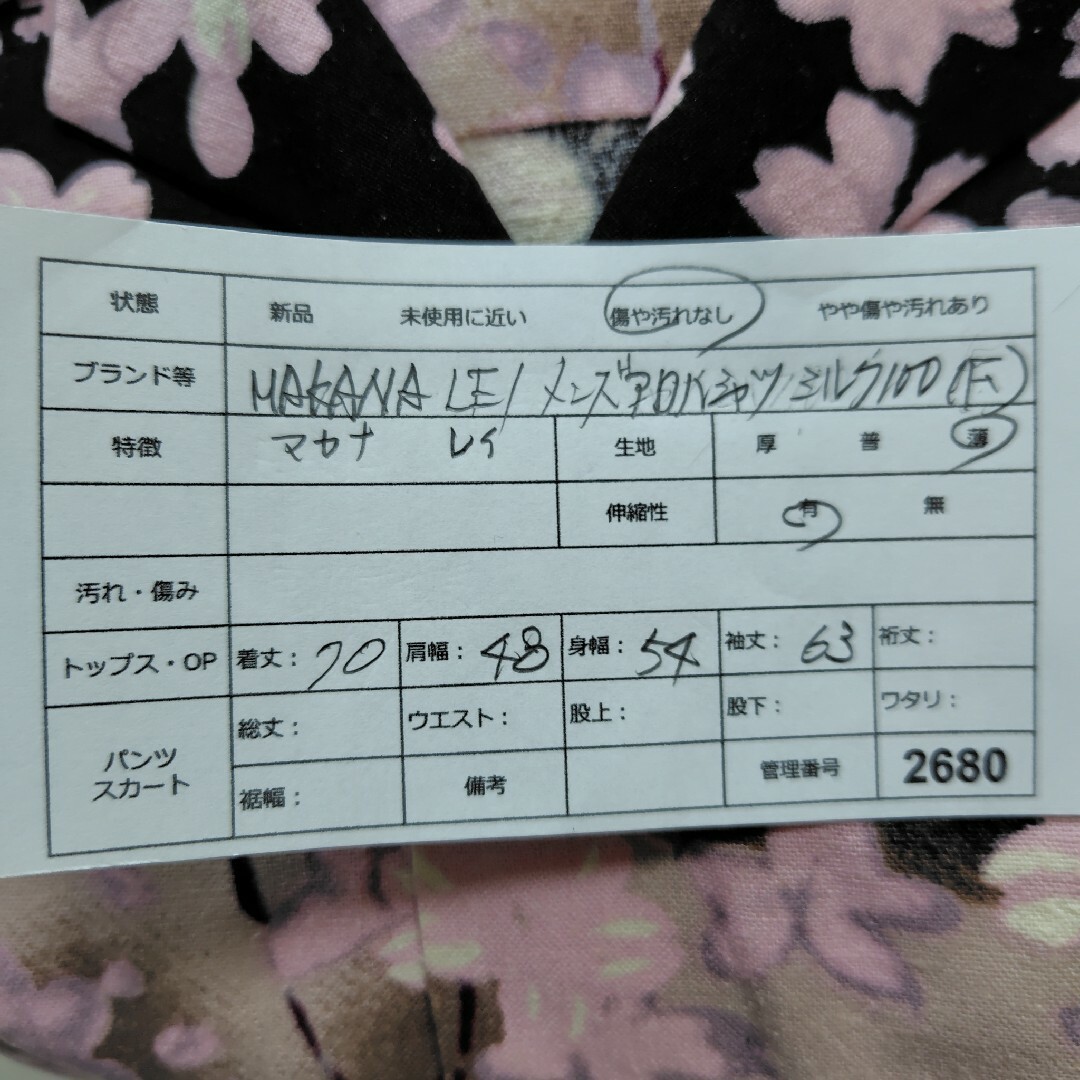 状態 新品 未使用に近い 傷や汚れなし やや傷や汚れあり
ブランド等 MAKANA LEI メンズ シャツ シルク100 (F)
特徴 マカナ レイ 生地 厚 普 薄
伸縮性 有 無
汚れ・傷み
トップス・OP 着丈: 70 肩幅: 48 身幅: 54 袖丈: 63 裄丈:
パンツ スカート 総丈: ウエスト: 股上: 股下: ワタリ:
裾幅: 備考 管理番号 2680